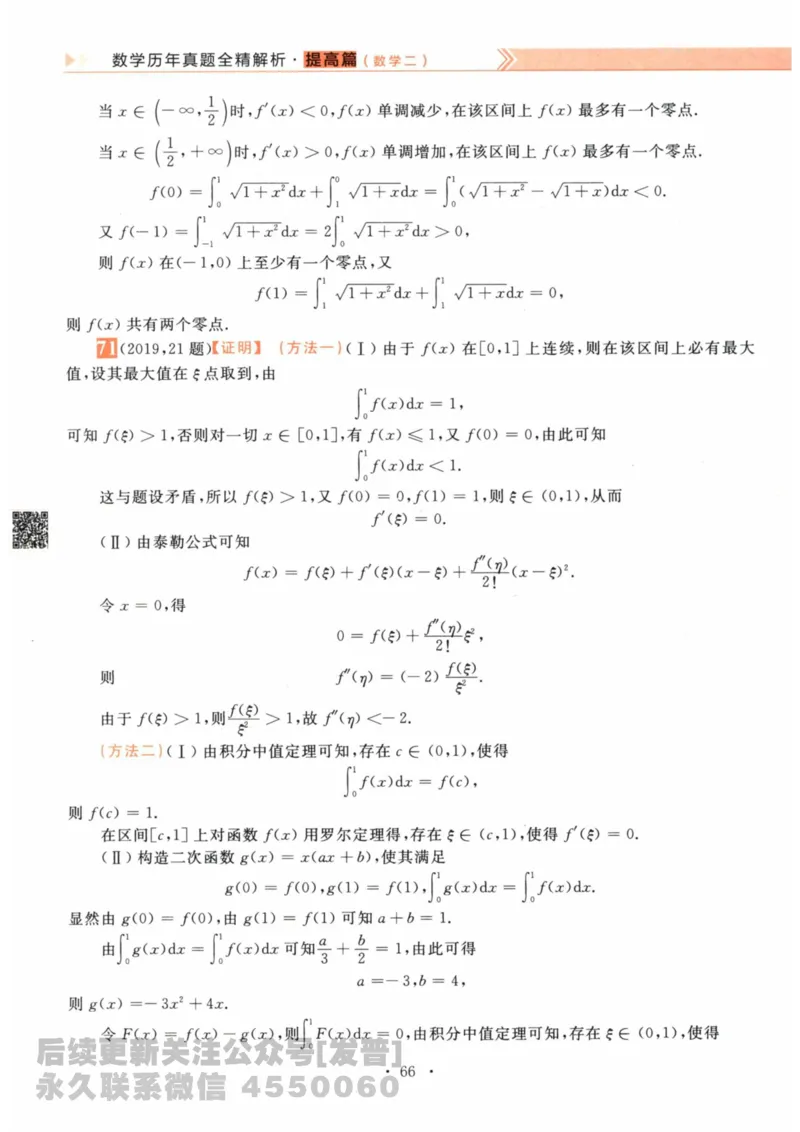 数学历年真题全精解析·提高篇(数学二)
当 x ∈ (−∞, 1/2)时,f′(x) < 0,f(x) 单调减少,在该区间上 f(x) 最多有一个零点.
当 x ∈ (1/2, +∞)时,f′(x) > 0,f(x) 单调增加,在该区间上 f(x) 最多有一个零点.
f(0) = ∫₀¹ √(1+x²)dx + ∫₁⁰ √(1+x)dx = ∫₀¹(√(1+x²) − √(1+x))dx < 0.
又 f(−1) = ∫₋₁¹ √(1+x²)dx = 2∫₀¹ √(1+x²)dx > 0,
则 f(x) 在(−1,0) 上至少有一个零点,又
f(1) = ∫₁¹ √(1+x²)dx + ∫₁¹ √(1+x)dx = 0,
则 f(x) 共有两个零点.
71 (2019,21 题)【证明】 (方法一)(Ⅰ)由于 f(x) 在[0,1] 上连续,则在该区间上必有最大
值,设其最大值在 ξ 点取到,由
∫₀¹ f(x)dx = 1,
可知 f(ξ) > 1,否则对一切 x ∈ [0,1],有 f(x) ⩽ 1,又 f(0) = 0,由此可知
∫₀¹ f(x)dx < 1.
这与题设矛盾,所以 f(ξ) > 1,又 f(0) = 0,f(1) = 1,则 ξ ∈ (0,1),从而
f′(ξ) = 0.
(Ⅱ)由泰勒公式可知
f(x) = f(ξ) + f′(ξ)(x − ξ) + f″(η)/2! (x − ξ)².
令 x = 0,得
0 = f(ξ) + f″(η)/2! ξ²,
则 f″(η) = (−2) f(ξ)/ξ².
由于 f(ξ) > 1,则 f(ξ)/ξ² > 1,故 f″(η) < −2.
(方法二)(Ⅰ)由积分中值定理可知,存在 c ∈ (0,1),使得
∫₀¹ f(x)dx = f(c),
则 f(c) = 1.
在区间[c,1] 上对函数 f(x) 用罗尔定理得,存在 ξ ∈ (c,1),使得 f′(ξ) = 0.
(Ⅱ)构造二次函数 g(x) = x(ax + b),使其满足
g(0) = f(0),g(1) = f(1),∫₀¹ g(x)dx = ∫₀¹ f(x)dx.
显然由 g(0) = f(0),由 g(1) = f(1) 可知 a + b = 1.
由∫₀¹ g(x)dx = ∫₀¹ f(x)dx 可知 a/3 + b/2 = 1,由此可得
a = −3,b = 4,
则 g(x) = −3x² + 4x.
令 F(x) = f(x) − g(x),则∫₀¹ F(x)dx = 0,由积分中值定理可知,存在 ξ ∈ (0,1),使得
后续更新关注公众号[发普]
· 66 ·
永久联系微信 4550060